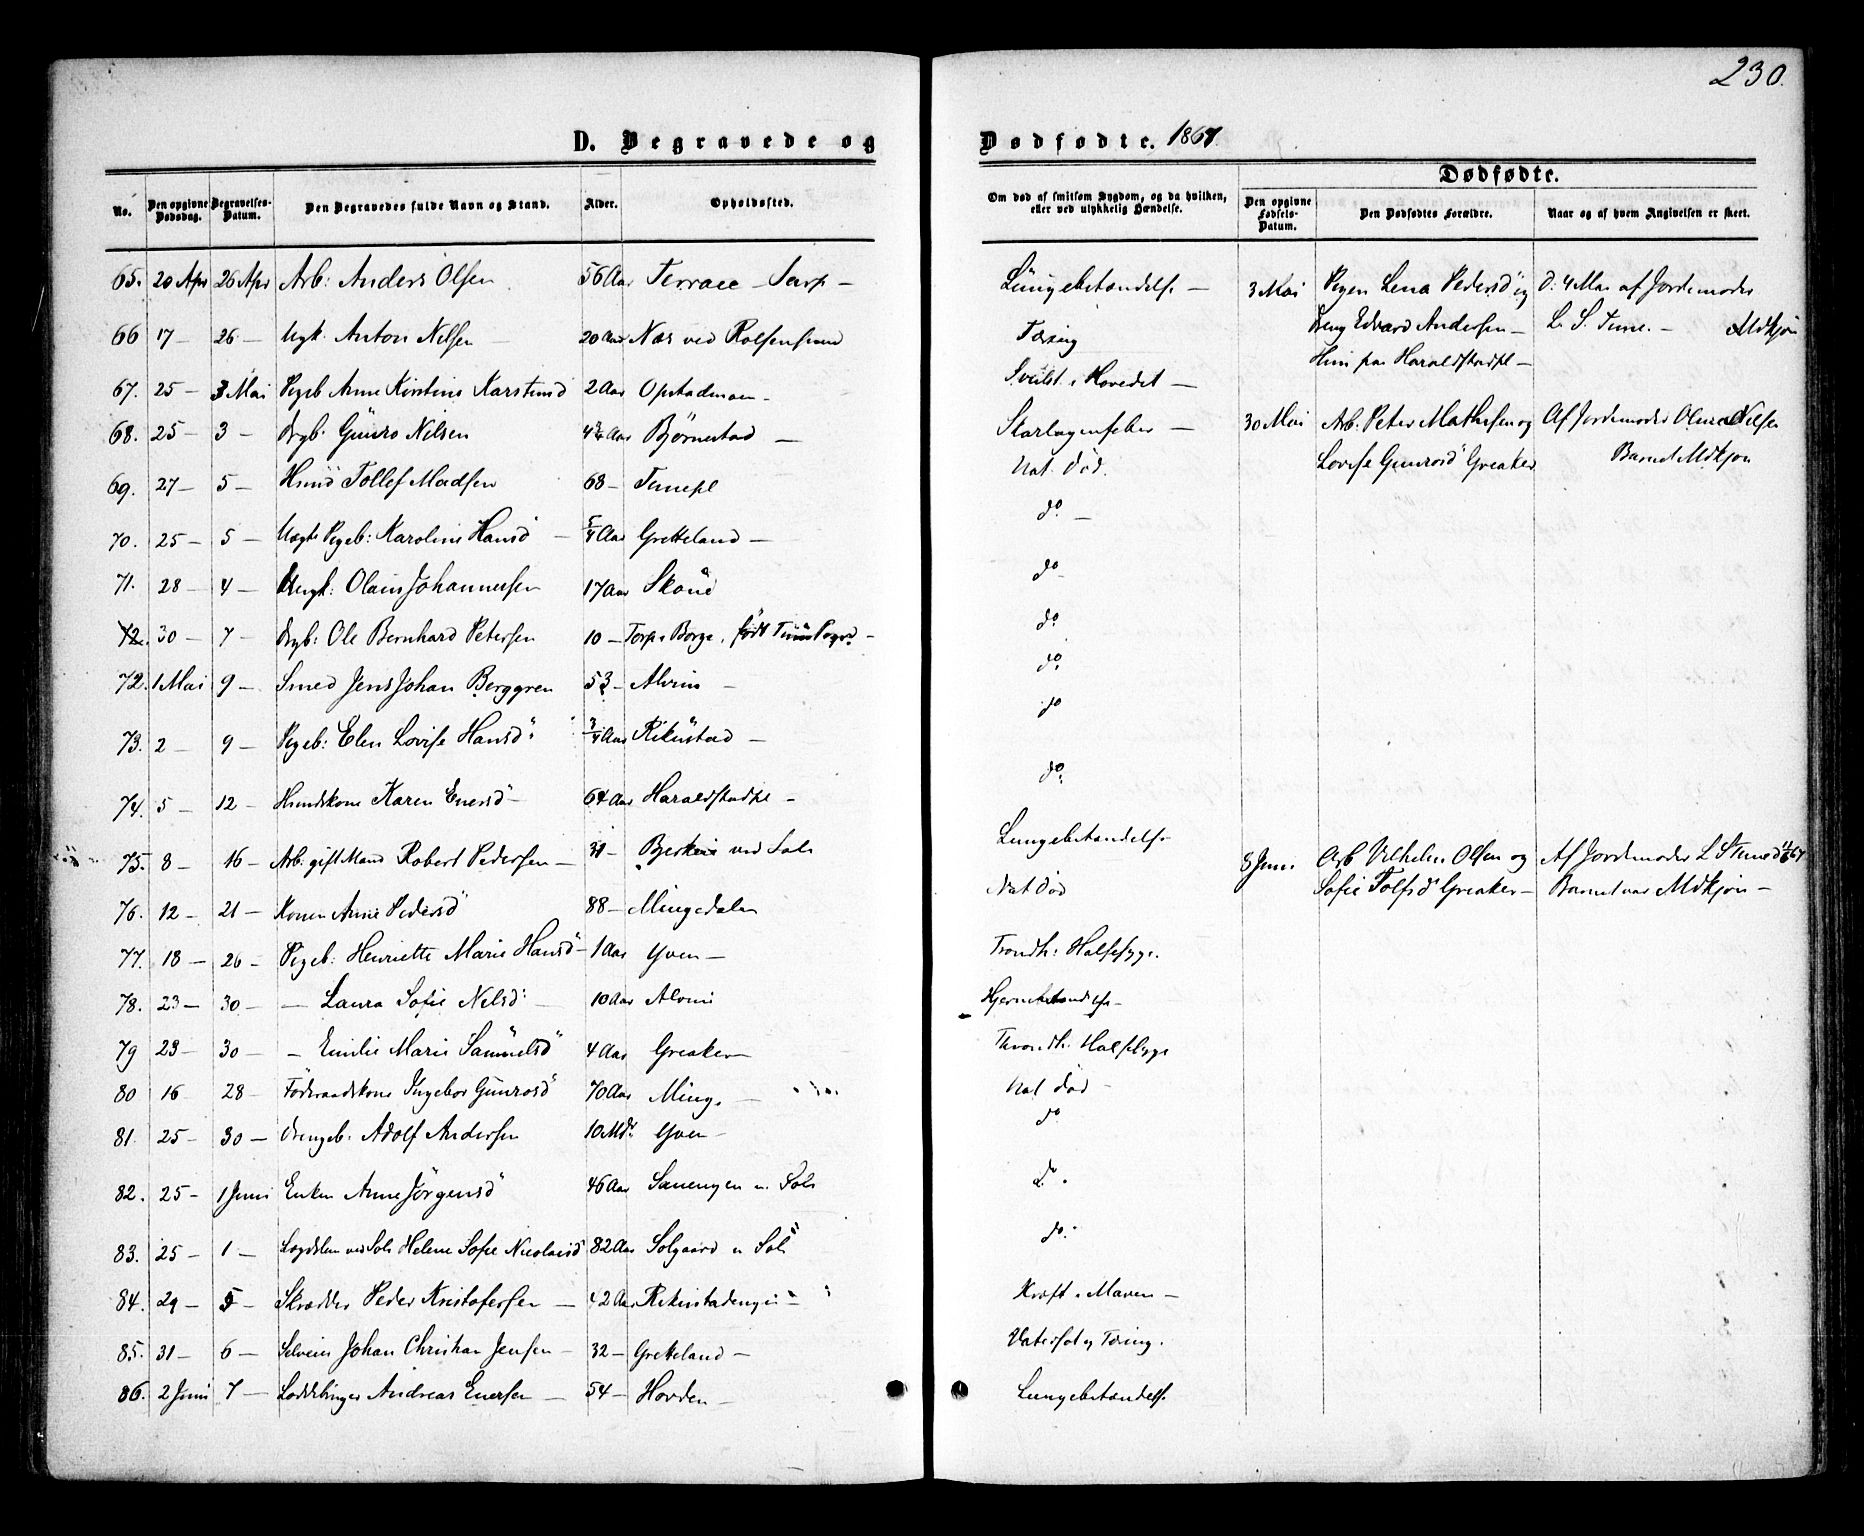 230.
D. Begravede og Dødfødte. 1867.
No. Den opgivne Dødsdag. Begravelses-Datum. Den Begravedes fulde Navn og Stand. Alder. Opholdssted.
Om død af smitsom Sygdom, og da hvilken, eller ved ulykkelig Hændelse. Dødfødte. Den opgivne Fødsels-Datum. Den Dødfødtes Forældre. Naar og af hvem Angivelsen er skeet.
65. 20 Apr 26 Apr Arb: Anders Olsen 56 Aar Terrace Sarp —
66 17 — 26 — Ugk. Anton Nilsen 20 Aar Næs ved Rolfsensund
67. 25 — 3 Mai Pigeb Anne Kirstine Karstensd 2 Aar Opstadmoen —
68. 25 — 3 — Drgb. Günro Nilsen 4 Aar Bjørnestad —
69. 27 — 5 — Hünd Tollef Madsen 68 — Tunepl
70. 25 — 5 — Uægte Pigeb: Karoline Hansd — 5/4 Aar Gretteland —
71. 28 — 4 — Ungk: Olaus Johannessen 17 Aar
72. 30 — 7 — Drgb: Ole Bernhard Petersen 10 — Torp i Borge, født Tune —
72. 1 Mai 9 — Smed Jens Johan Berggren 53 — Alvim —
73. 2 — 9 — Pigeb: Elen Lovise Hansd 3/4 Aar Rikustad —
74. 5 — 12 — Husmdskone Karen Enersd — 64 Aar Haraldstadpl —
75. 8 — 16 — Arb: gift Mand Robert Pedersen — 31 — ved Sole
76. 12 — 21 — Konen Anne Pedersd 88 — Mingedalen
77. 18 — 26 — Pigeb: Henriette Marie Hansd — 1 Aar Yven —
78. 23 — 30 — — Laura Sofie Nilsd — 10 Aar Alvim
79 23 — 30 — — Emilie Marie Samuelsd 4 Aar Greaker —
80 16 28 — Föderaadskone Ingebor Günrosd 70 Aar Minge —
81. 25 — 30 — Drengeb. Adolf Andersen 10 Mdr Yven —
82. 25 — 1 Juni Enken Anne Jörgensd 46 Aar
83. 25 — 1 — Lægdslem ved Sole Helene Sofie Nicolaisd 82 Aar Solgaard u Sole
84. 29 — 5 — Skrædder Peder Kristofersen — 42 Aar Rikustadengen —
85. 31 — 6 — Selveier Johan Christian Jensen — 32 — Gretteland —
86. 2 Juni 7 — Andreas Enersen — 54 — Hovden —
Lüngebetændelse —
Tæring
Svulst i Hovedet —
Skarlagensfeber —
Nat. Død.
do —
do
do
do
do
do
Lungebetændelse
Nat Død
Trondh: Halssyge.
Hjernebetændelse —
Throndh: Halssyge
Nat Død —
do
do
do
Kræft i Maven —
Vatersot og Tæring.
Lungebetændelse
3 Mai Pigen Lena Pedersd og D: 4 Mai af Jordemoder
Dreng Edvard Andersen — L. S. Tune. — Mdkjøn
Hun paa Haraldstadpl —
30 Mai Arb. Peter Mathisen og Af Jordemoder Olava Nilsen
Lovise Gunrosd Greaker Barnet Mdkjøn
8 Juni Arb Vilhelm Olsen og Af Jordemoder L S Tune
Sofie Tolfsd Greaker — Barnet var Mdkjøn —